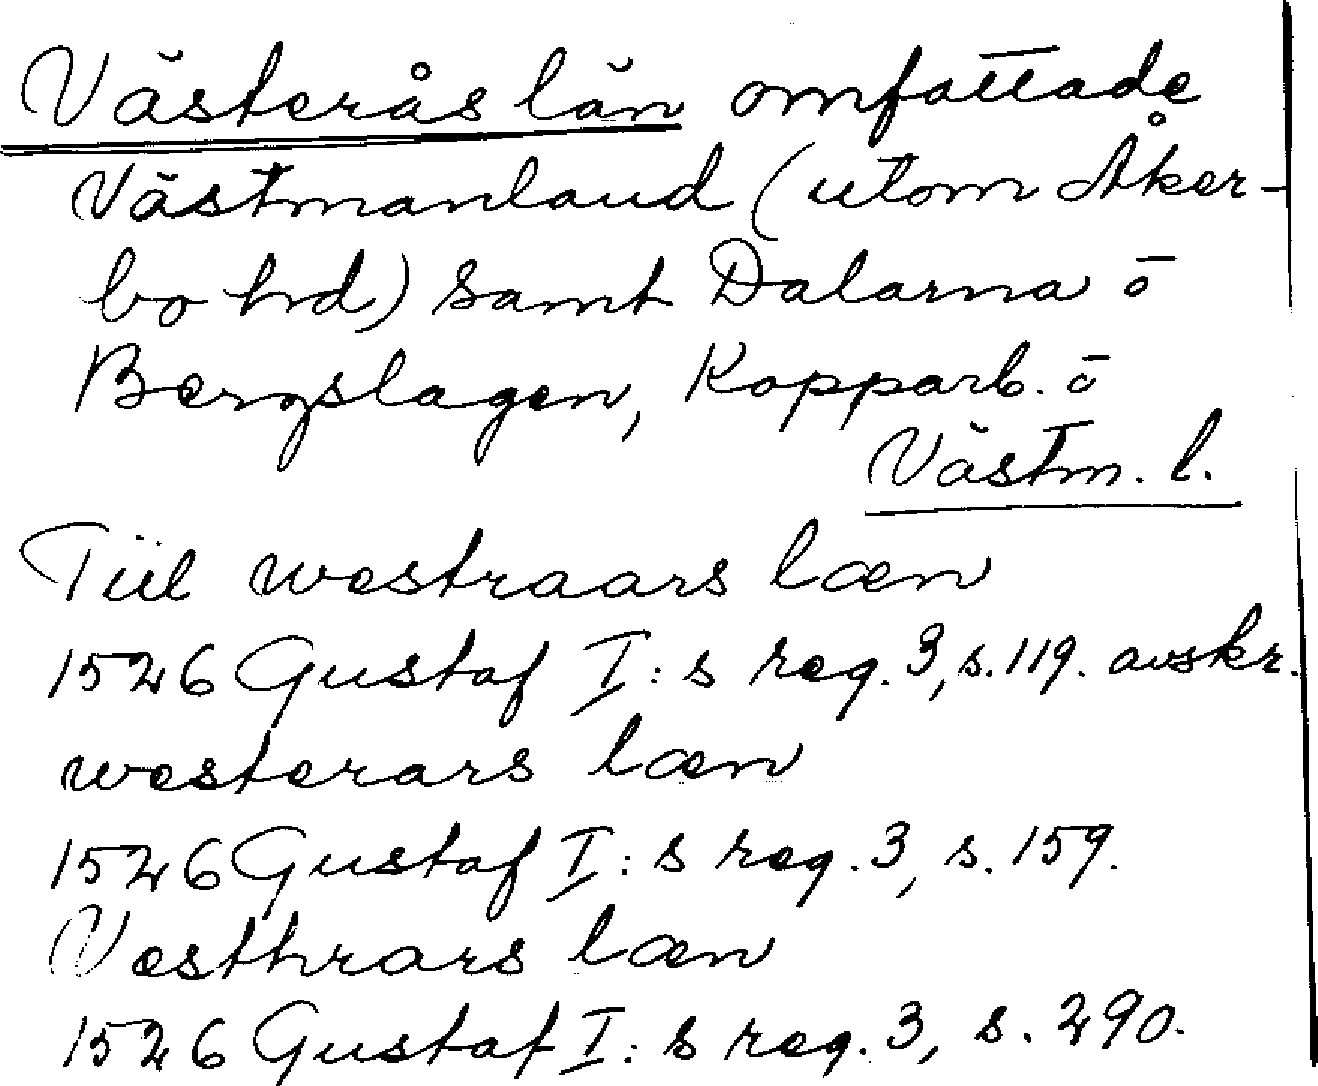 Västerås län omfattade
Västmanland (utom Åker-
bo hd) samt Dalarna o
Bergslagen, Kopparb. o
Västm. l.
Tiil westraars læn
1526 Gustaf I:s reg. 3, s. 119. avskr.
westerars læn
1526 Gustaf I:s reg. 3, s. 159.
Vesthrars læn
1526 Gustaf I:s reg. 3, s. 290.